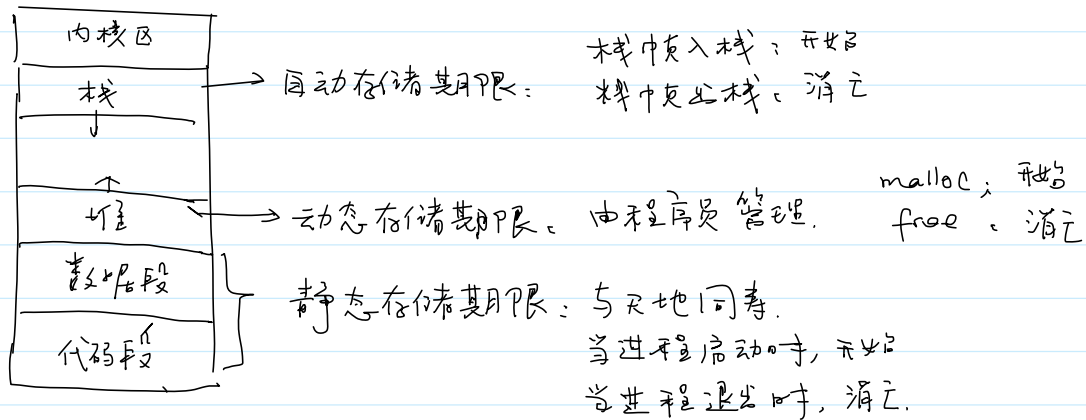 内核区
栈
自动存储期限：
栈帧入栈：开始
栈帧出栈：消亡
堆
动态存储期限：由程序员管理.
malloc：开始
free：消亡
数据段
代码段
静态存储期限：与天地同寿.
当进程启动时，开始
当进程退出时，消亡.